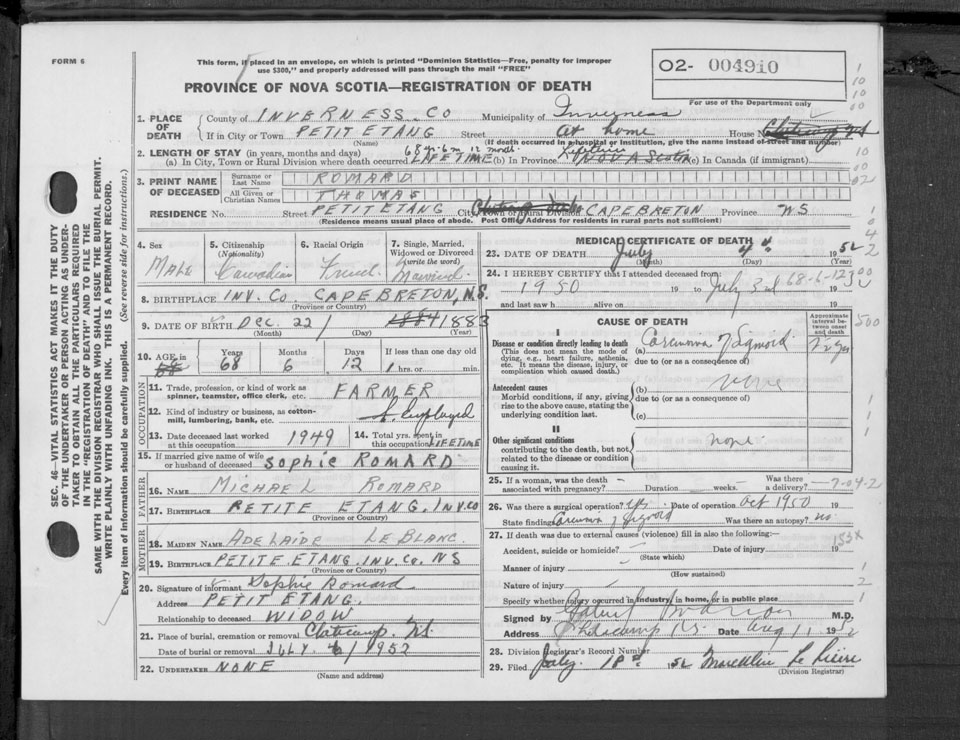 FORM 6
This form, if placed in an envelope, on which is printed "Dominion Statistics—Free, penalty for improper
use $300," and properly addressed will pass through the mail "FREE"
O2- 004910
PROVINCE OF NOVA SCOTIA—REGISTRATION OF DEATH
For use of the Department only
1. PLACE OF DEATH
County of INVERNESS CO Municipality of Inverness
If in City or Town PETIT ETANG Street at home House No. Cheticamp NS
(Name) (If death occurred in a hospital or institution, give the name instead of street and number)
2. LENGTH OF STAY (in years, months and days) 68 yr. 6 m 12
(a) In City, Town or Rural Division where death occurred LIFETIME (b) In Province Lifetime NOVA Scotia (c) in Canada (if immigrant)
3. PRINT NAME OF DECEASED
Surname or Last Name ROMARD
All Given or Christian Names THOMAS
RESIDENCE No. Street PETIT ETANG City, Town or Rural Division CAPE BRETON Province NS
(Residence means usual place of abode. Post Office Address for residents in rural parts not sufficient)
4. Sex
MALE
5. Citizenship
(Nationality)
Canadian
6. Racial Origin
French
7. Single, Married,
Widowed or Divorced
(write the word)
Married
8. BIRTHPLACE INV. Co CAPE BRETON, N.S.
(Province or Country)
9. DATE OF BIRTH Dec. 22 1884 1883
(Month) (Day) (Year)
10. AGE in
Years 68
Months 6
Days 12
If less than one day old
hrs. or min.
OCCUPATION
11. Trade, profession, or kind of work as
spinner, teamster, office clerk, etc. FARMER
12. Kind of industry or business, as cotton-
mill, lumbering, bank, etc.
13. Date deceased last worked
at this occupation 1949
14. Total yrs. spent in
this occupation LIFETIME
15. If married give name of wife
or husband of deceased SOPHIE ROMARD
FATHER
16. NAME MICHAEL ROMARD
17. BIRTHPLACE PETITE ETANG. INV. CO
(Province or Country)
MOTHER
18. MAIDEN NAME ADELAIDE LE BLANC
19. BIRTHPLACE PETITE ETANG. INV. Co. NS
(Province or Country)
20. Signature of informant Sophie Romard
Address PETIT ETANG.
Relationship to deceased WIDOW
21. Place of burial, cremation or removal Cheticamp. NS.
Date of burial or removal JULY 6/1952
22. UNDERTAKER NONE
(Name and address)
MEDICAL CERTIFICATE OF DEATH
23. DATE OF DEATH July 4 1952
(Month) (Day) (Year)
24. I HEREBY CERTIFY that I attended deceased from:
1950 19 to July 3rd 68-6-12 19
and last saw h alive on 19
CAUSE OF DEATH
Approximate interval between onset and death
I
Disease or condition directly leading to death
(This does not mean the mode of
dying, e.g., heart failure, asthenia,
etc. It means the disease, injury, or
complication which caused death.)
(a) Carcinoma of Sigmoid 2 yrs
due to (or as a consequence of)
Antecedent causes
Morbid conditions, if any, giving
rise to the above cause, stating the
underlying condition last.
(b) none
due to (or as a consequence of)
(c)
II
Other significant conditions
contributing to the death, but not
related to the disease or condition
causing it.
none
25. If a woman, was the death
associated with pregnancy? Duration weeks. Was there a delivery?
26. Was there a surgical operation? yes Date of operation Oct 1950 19
State finding Carcinoma of Sigmoid Was there an autopsy? no
27. If death was due to external causes (violence) fill in also the following:—
Accident, suicide or homicide? Date of injury 19
(State which)
Manner of injury
(How sustained)
Nature of injury
Specify whether injury occurred in industry, in home, or in public place
Signed by M.D.
Address Cheticamp N.S. Date Aug 11 1952
28. Division Registrar's Record Number
29. Filed July 18 1952
(Division Registrar)
SEC. 46—VITAL STATISTICS ACT MAKES IT THE DUTY
OF THE UNDERTAKER OR PERSON ACTING AS UNDER-
TAKER TO OBTAIN ALL THE PARTICULARS REQUIRED
IN THE "REGISTRATION OF DEATH" AND TO FILE THE
SAME WITH THE DIVISION REGISTRAR WHO SHALL ISSUE THE BURIAL PERMIT.
WRITE PLAINLY WITH UNFADING INK. THIS IS A PERMANENT RECORD.
Every item of information should be carefully supplied. (See reverse side for instructions.)